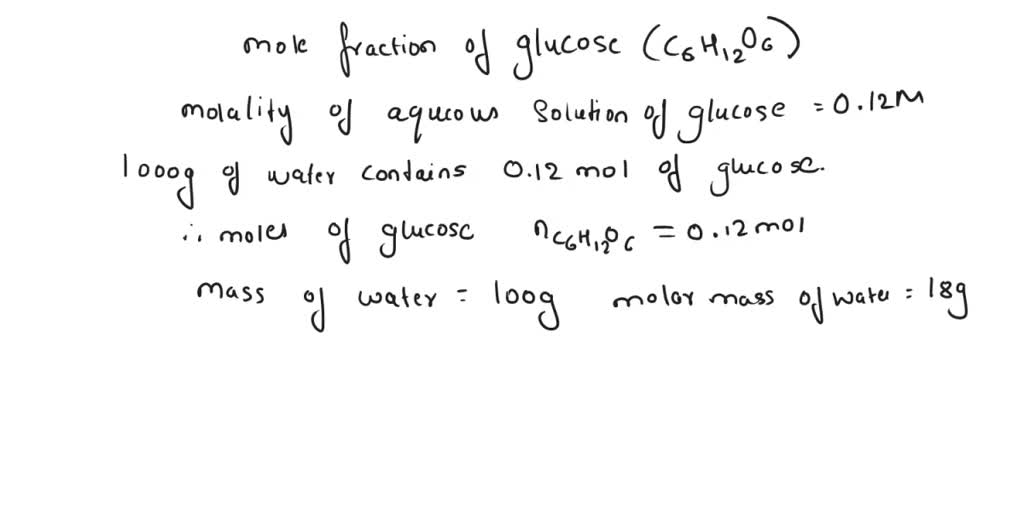 mole fraction of glucose (C6H12O6)
molality of aqueous solution of glucose = 0.12M
1000g of water contains 0.12 mol of glucose.
∴ moles of glucose nC6H12O6 = 0.12 mol
mass of water = 100g molar mass of water = 18g